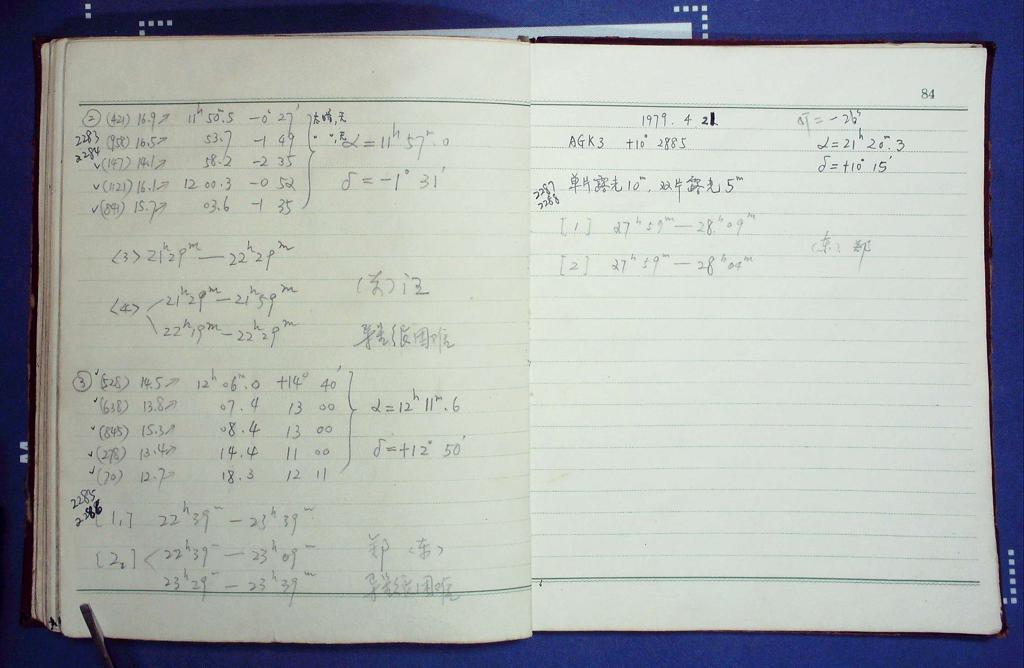 ② (421) 16.9↗ 11ʰ 50ᵐ.5 -0° 27′
2283 (958) 16.5↗ 53.7 -1 49 α=11ʰ 57ᵐ.0
2284 ✓(147) 14.1↗ 58.2 -2 35
✓(1121) 16.1↗ 12 00.3 -0 52 δ=-1° 31′
✓(841) 15.7↗ 03.6 -1 35
<3> 21ʰ29ᵐ — 22ʰ29ᵐ
(东) 汪
<4> 21ʰ29ᵐ — 21ʰ59ᵐ
22ʰ19ᵐ — 22ʰ29ᵐ 导星很困难
③ ✓(528) 14.5↗ 12ʰ 06ᵐ.0 +14° 40′
✓(638) 13.8↗ 07.4 13 00 α=12ʰ 11ᵐ.6
✓(845) 15.3↗ 08.4 13 00
✓(278) 13.4↗ 14.4 11 00 δ=+12° 50′
✓(70) 12.7↗ 18.3 12 11
2285
2286
[1] 22ʰ39ᵐ — 23ʰ39ᵐ
[2] 22ʰ39ᵐ — 23ʰ09ᵐ 郑 (东)
23ʰ29ᵐ — 23ʰ39ᵐ 导星很困难
84
1979. 4. 21
AGK3 +10° 2885 α=21ʰ 20ᵐ.3
δ=+10° 15′
2287
2288
单片露光10ᵐ, 双片露光5ᵐ
[1] 27ʰ59ᵐ — 28ʰ09ᵐ
(东) 郑
[2] 27ʰ59ᵐ — 28ʰ04ᵐ